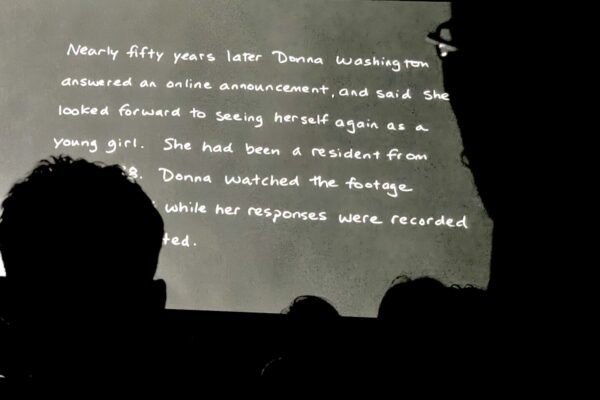 Nearly fifty years later Donna Washington
answered an online announcement, and said she
looked forward to seeing herself again as a
young girl. She had been a resident from
8. Donna watched the footage
while her responses were recorded